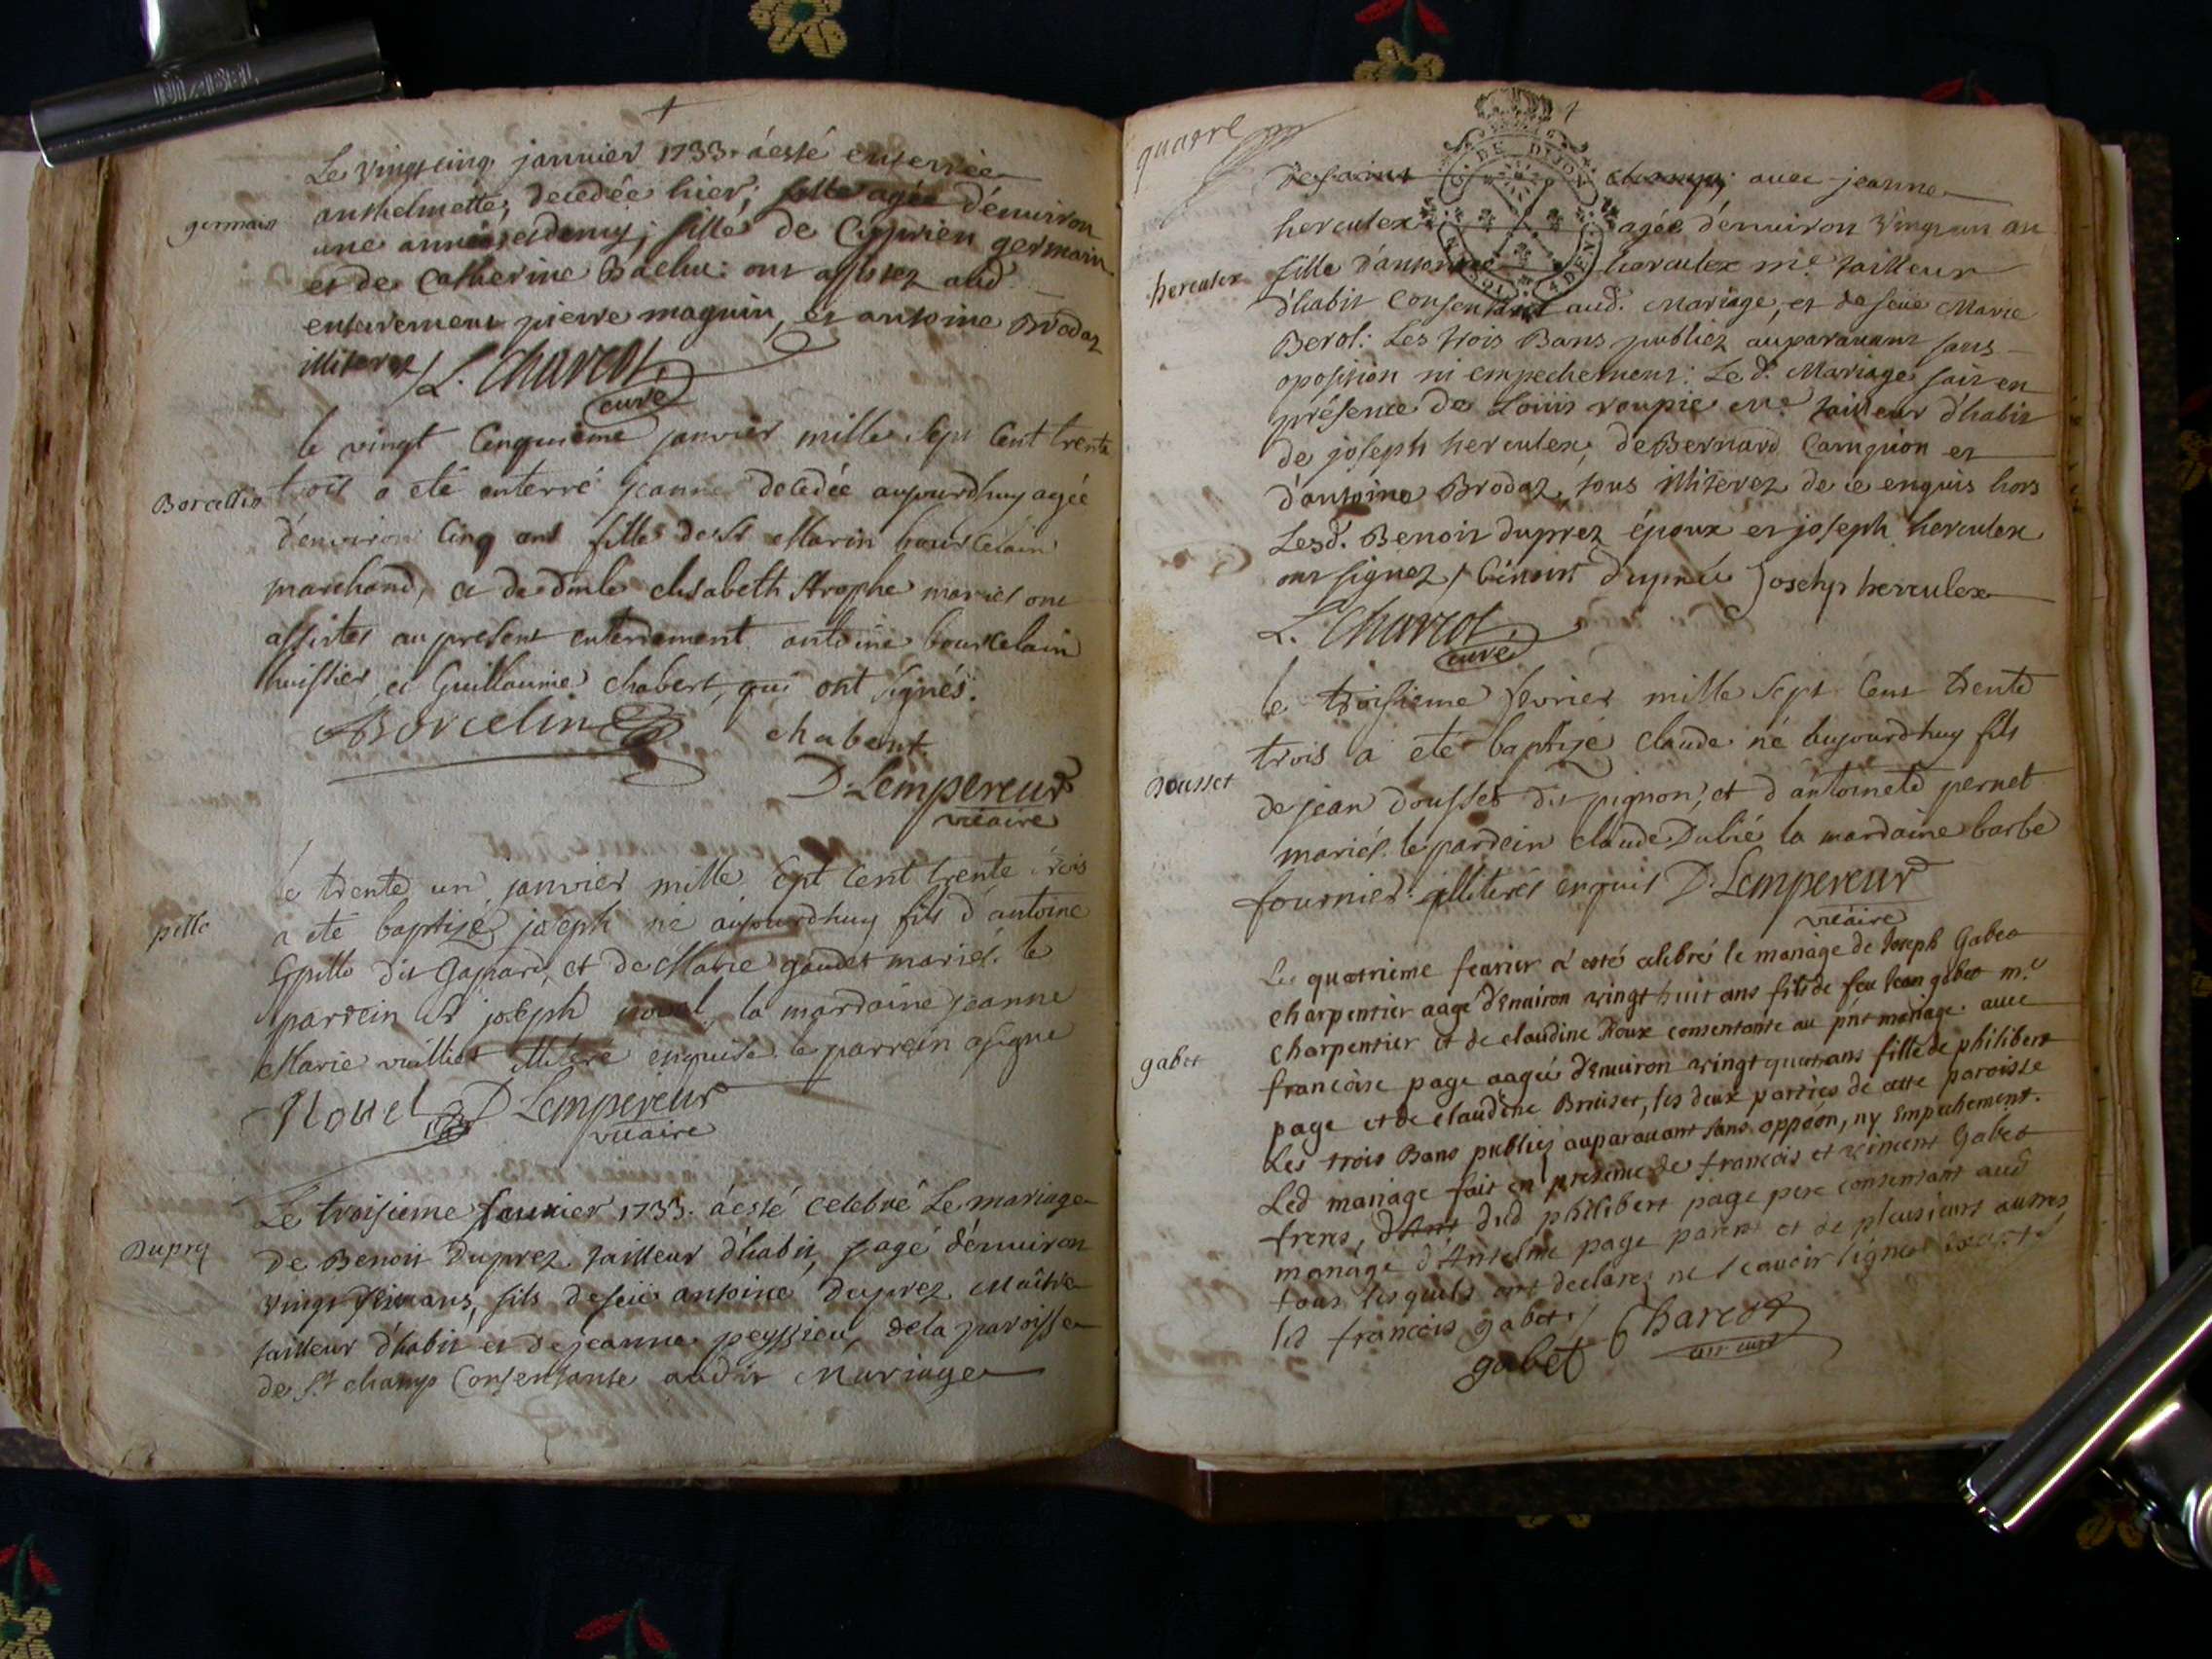 Le vingt cinq janvier 1733. à esté enterrée
germain
anthelmette, decedée hier, fille agée d'énuiron
une année et demy, fille de Cyprien germain
et de Catherine Bachu: ont assistez aud.
enterrement pierre maguin, et antoine Brodaz
illiterez L. Charcot,
curé
le vingt cinquieme janvier mille sept cent trente
trois a eté enterré jeanne decedée aujourdhuy agée
d'environ cinq ans fille de Sr Marin bourcelain
marchand, et de dmle elisabeth Strophe mariés ont
assistes au present enterrement antoine bourcelain
huissier et Guillaume chabert, qui ont signés.
Borcelin chabert
D. Lempereur
vicaire
le trente un janvier mille sept cent trente trois
pitte
a eté baptizé joseph né aujourdhuy fils d'antoine
dit et de Marie gaudet mariés. le
parrein Sr joseph novel, la mardaine jeanne
Marie vuilliet illiteré enquise le parrein a signé
Novel D Lempereur
vicaire
Le troisieme feurier 1733. à esté celebré Le mariage
Duprez
de Benoit Duprez tailleur d'habit, agé d'énuiron
vingt ans, fils de feu antoine Duprez Maître
tailleur d'habit et de jeanne peyssieu, de la paroisse
de St champ Consentante audit Mariage
quatre
G. DE DIJON
de saint champ, avec jeanne
herculex agée d'énuiron vingt un an
herculex
fille d'antoine herculex me tailleur
d'habit Consentant aud. Mariage, et de feüe Marie
Berol: Les trois Bans publiez auparauant sans
oposition ni empechement: Le d. Mariage fait en
présence de Loüis roupie me tailleur d'habit
de joseph herculex, de Bernard Campion et
d'antoine Brodaz, tous illiterez de ce enquis hors
Lesd. Benoit duprez époux et joseph herculex
ont signez / benoist dupréz Josehp herculex
L. Charcot,
curé
le troisieme fevrier mille sept cent trente
trois a eté baptizé claude né aujourdhuy fils
Dousset
de jean dousset dit pignon, et d'antoinete pernet
mariés. le pardein claude Dubié la mardaine barbe
fournier. illiterés enquis D. Lempereur
vicaire
Le quatrieme feurier à esté celebré le mariage de Joseph Gabet
charpentier aagé d'enuiron vingt huit ans fils de feu Jean gabet me
charpentier et de claudine Roux consentante au pnt mariage. auec
gabet
francoise page aagée d'enuiron vingt quatr ans fille de philibert
page et de claudine Bruiset, les deux parties de cette paroisse
Les trois Bans publiez auparauant sans oppoon, ny empechement.
Led mariage fait en presence de francois et vincent Gabet
freres, dud philibert page pere consentant aud
mariage d'Antelme page parent et de plusieurs autres
tous lesquels ont declarez ne scavoir signer
led francois gabet
gabet Charcot
curé